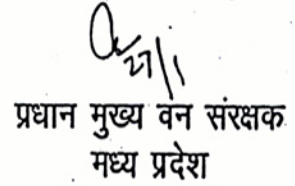 27/1
प्रधान मुख्य वन संरक्षक
मध्य प्रदेश